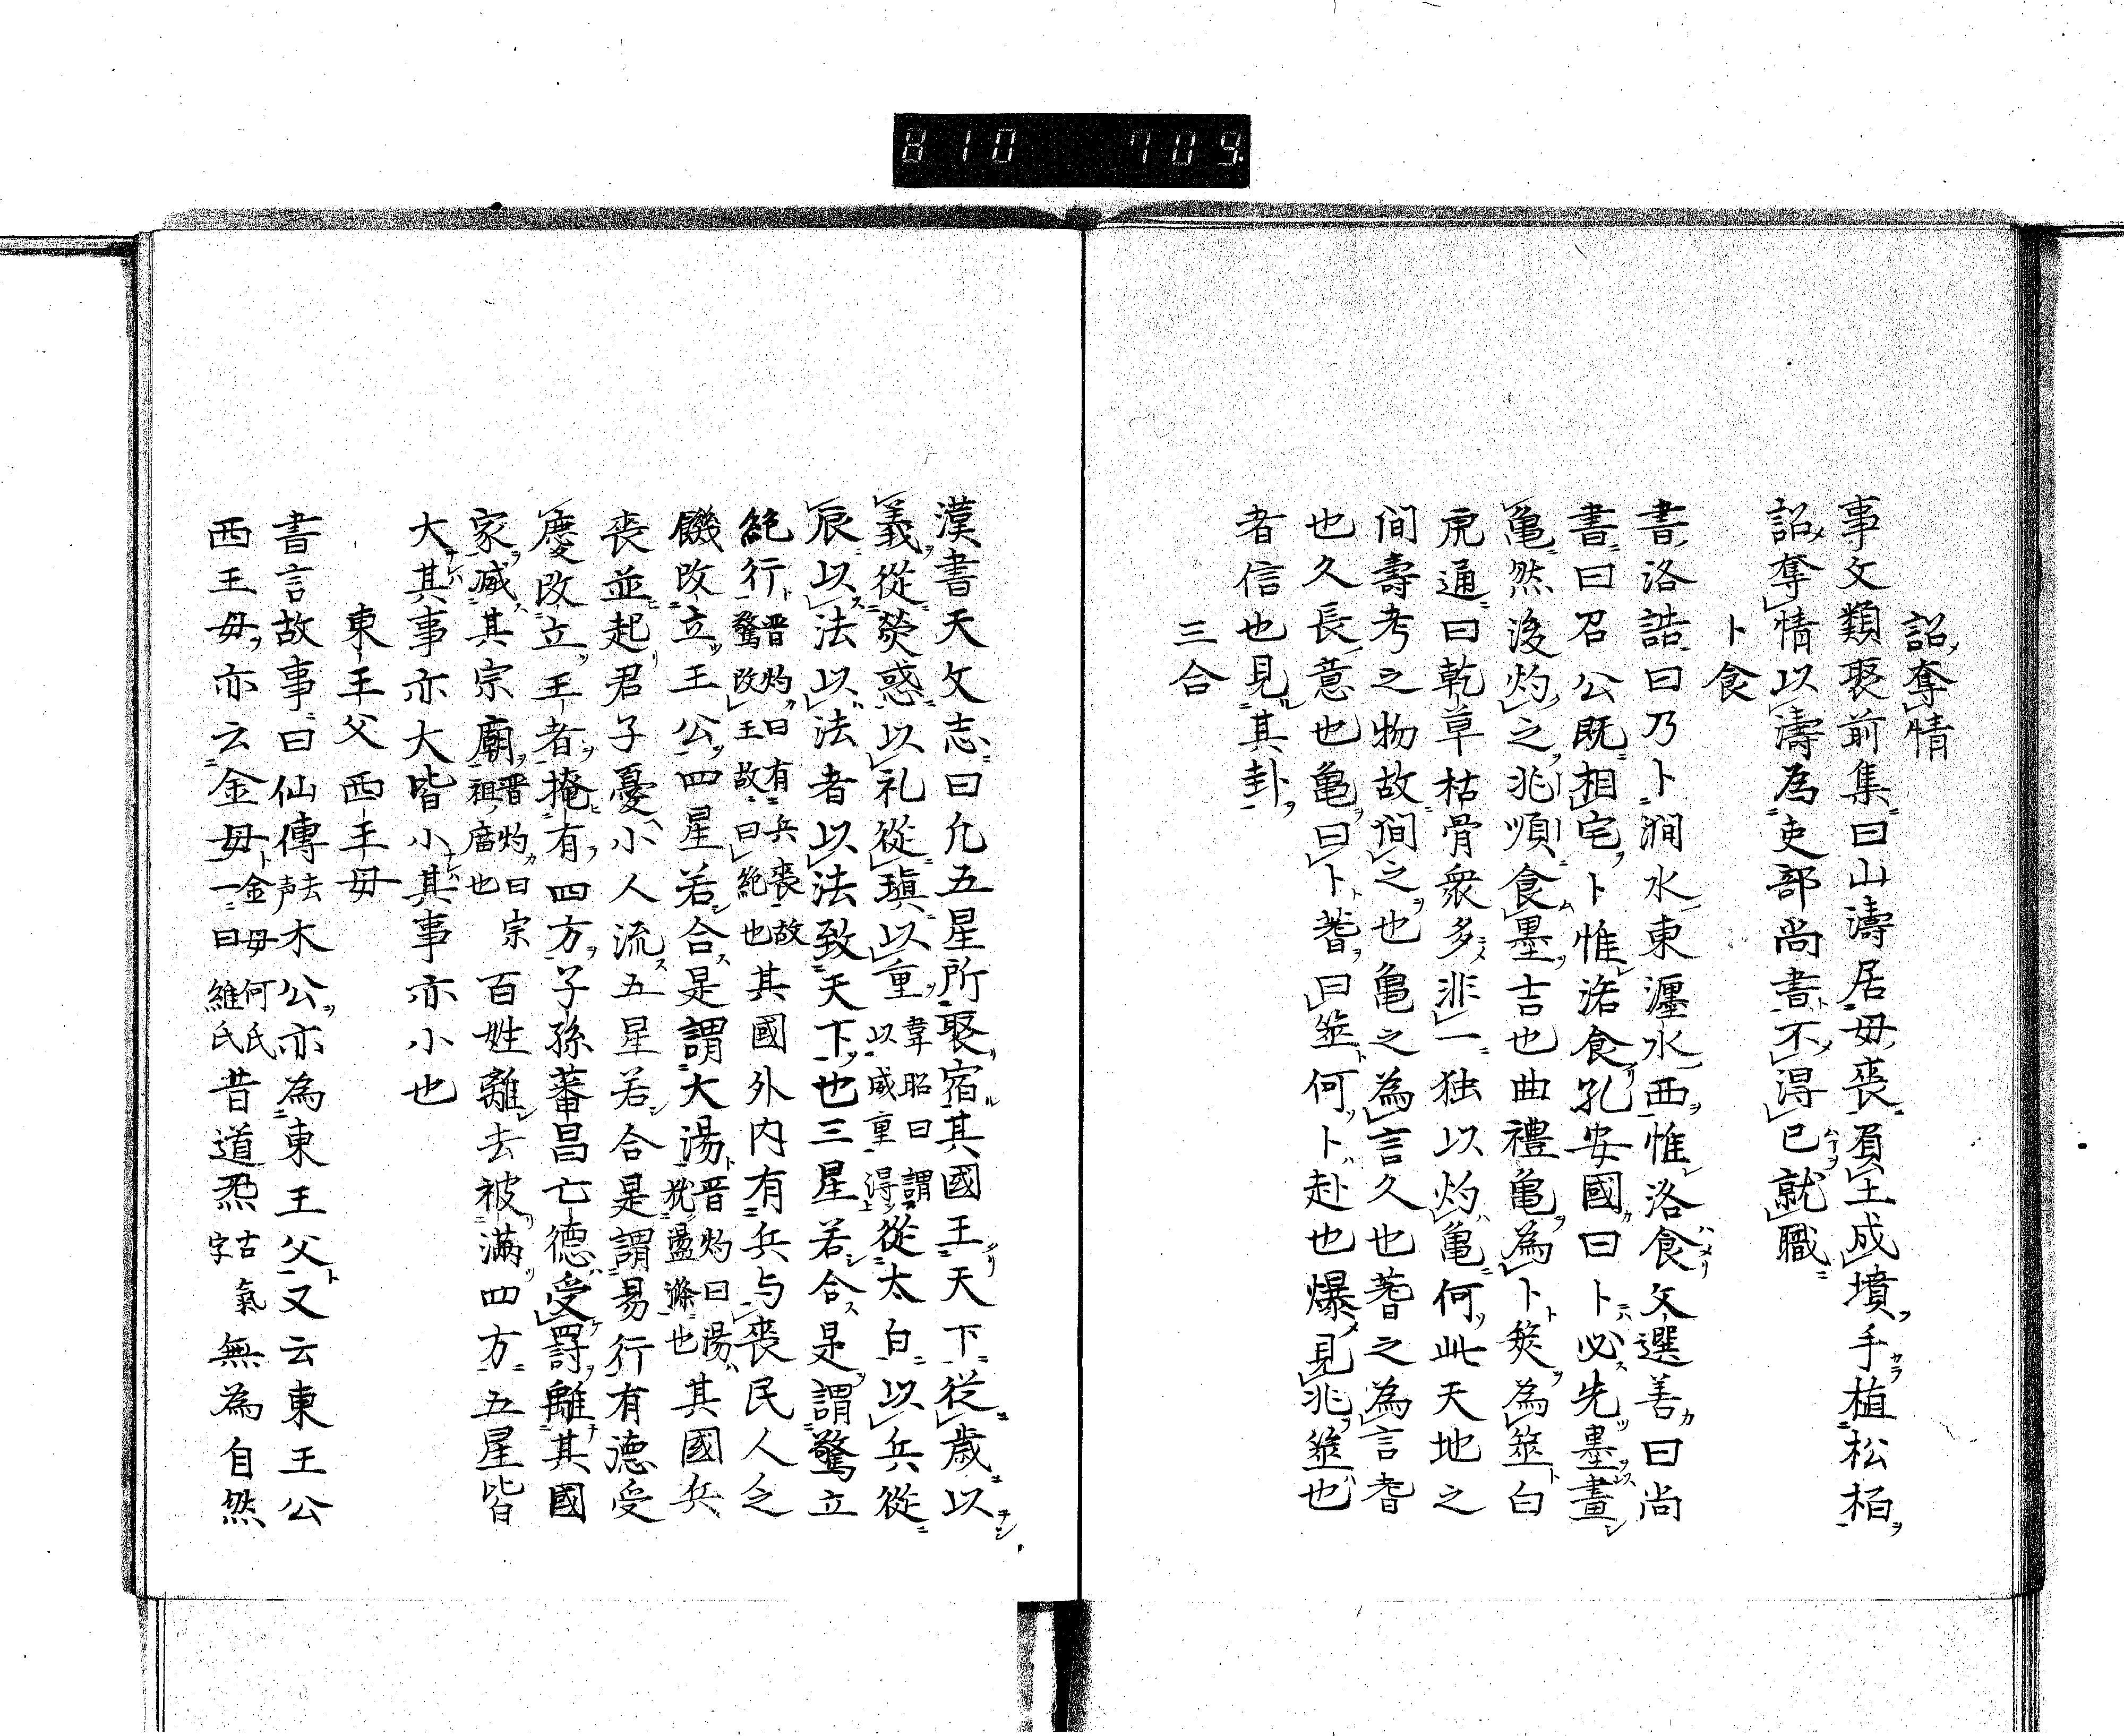 810 709
詔奪情
事文類聚前集曰山濤居母喪負土成墳手植松柏
詔奪情以濤為吏部尚書不得已就職
卜食
書洛誥曰乃卜澗水東瀍水西惟洛食文選善曰尚
書曰召公既相宅卜惟洛食孔安國曰卜必先墨畫
亀然後灼之兆順食墨吉也曲禮亀為卜筴為筮白
虎通曰乾草枯骨衆多非一独以灼亀何此天地之
間壽考之物故問之也亀之為言久也蓍之為言耆
也久長意也亀曰卜蓍曰筮何卜赴也爆見兆筮也
者信也見其卦
三合
漢書天文志曰凢五星所聚宿其國王天下從歳以
義從熒惑以礼從瑱以重韋昭曰謂以威重得從太白以兵從
辰以法以法者以法致天下也三星若合是謂驚立
絶行晋灼曰有兵喪故驚改王故曰絶也其國外内有兵与喪民人乏
饑改立王公四星若合是謂大湯晋灼曰湯猶盪滌也其國兵
喪並起君子憂小人流五星若合是謂易行有德受
慶改立王者掩有四方子孫蕃昌亡德受罸離其國
家滅其宗廟晋灼曰宗祖廟也百姓離去被滿四方五星皆
大其事亦大皆小其事亦小也
東王父西王母
書言故事曰仙傳去声木公亦為東王父又云東王公
西王母亦云金母金母何氏一曰維氏昔道炁古氣字無為自然